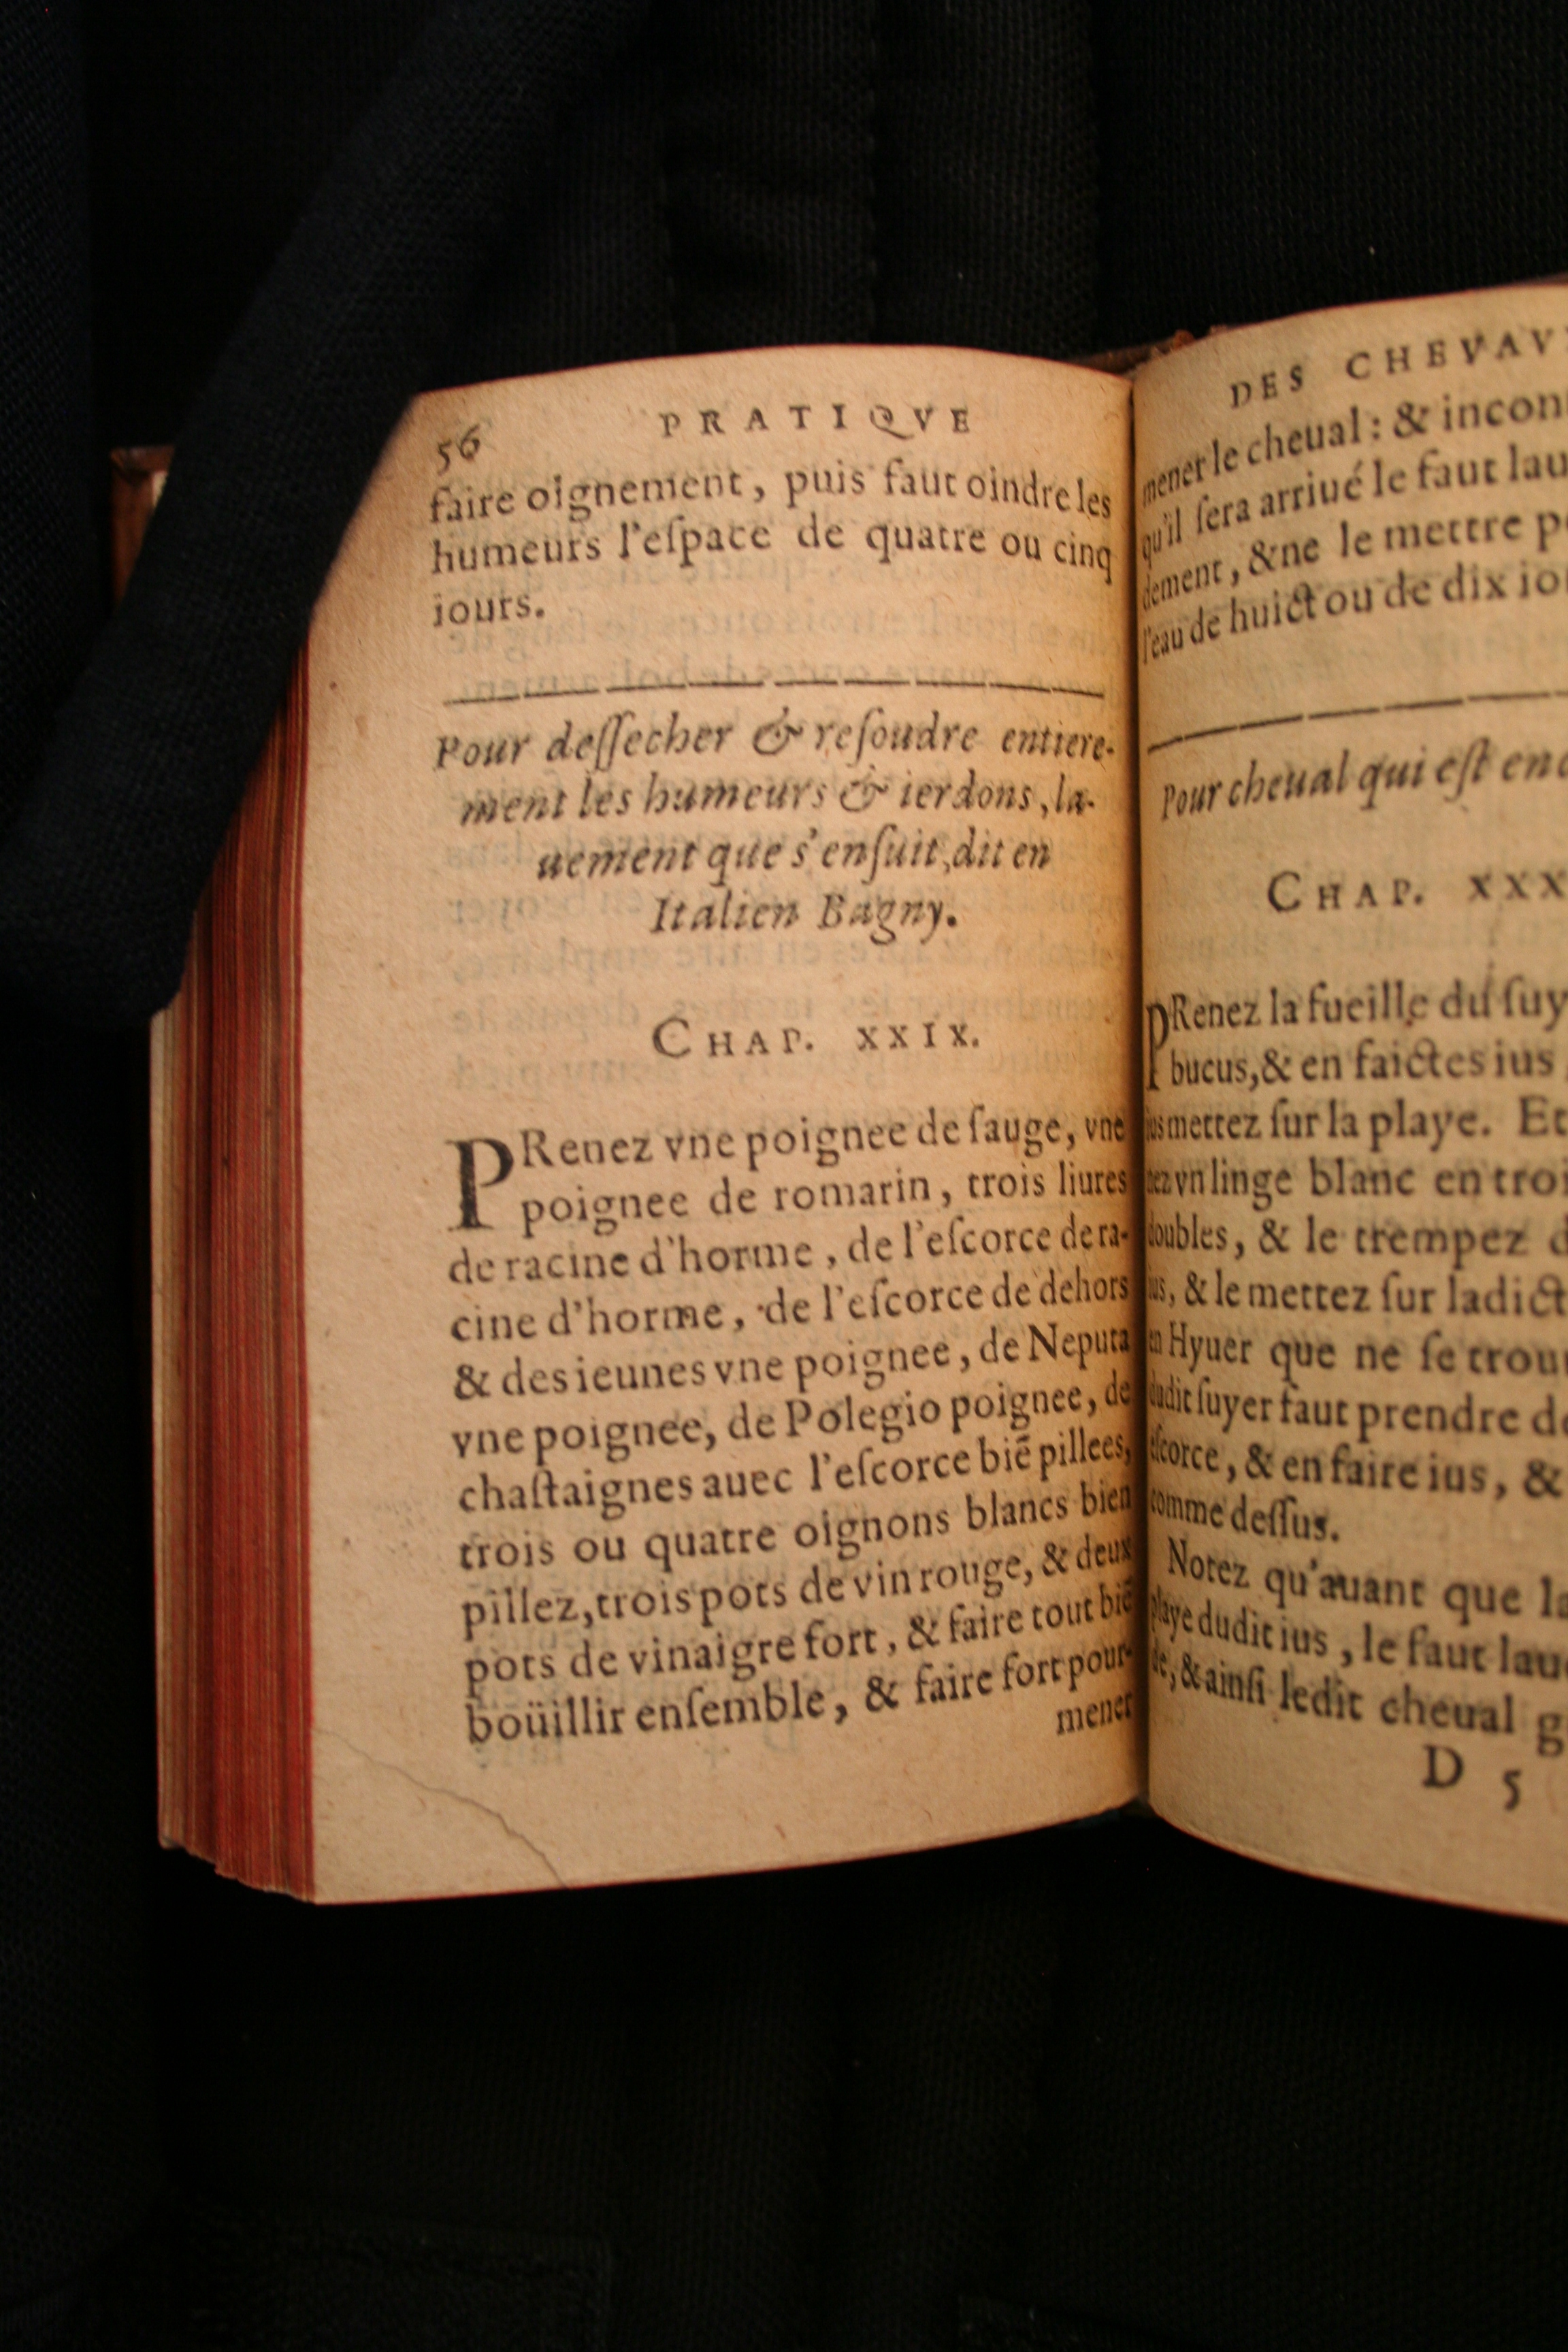 56 PRATIQVE
faire oignement, puis faut oindre les
humeurs l'eſpace de quatre ou cinq
iours.
Pour deſſecher & reſoudre entiere-
ment les humeurs & ierdons, la-
uement que s'enſuit, dit en
Italien Bagny.
CHAP. XXIX.
PRenez vne poignee de ſauge, vne
poignee de romarin, trois liures
de racine d'horme, de l'eſcorce de ra-
cine d'horme, de l'eſcorce de dehors
& des ieunes vne poignee, de Neputa
vne poignee, de Polegio poignee, de
chaſtaignes auec l'eſcorce biẽ pillees,
trois ou quatre oignons blancs bien
pillez, trois pots de vin rouge, & deux
pots de vinaigre fort, & faire tout biẽ
boüillir enſemble, & faire fort pour-
mener
DES CHEVAV
mener le cheual: & incon
qu'il ſera arriué le faut lau
dement, & ne le mettre p
l'eau de huict ou de dix io
Pour cheual qui eſt enc
CHAP. XXX
PRenez la fueille du ſuy
bucus, & en faictes ius
ius mettez ſur la playe. Et
tez vn linge blanc en troi
doubles, & le trempez d
ius, & le mettez ſur ladict
en Hyuer que ne ſe trou
dudit ſuyer faut prendre de
eſcorce, & en faire ius, &
comme deſſus.
Notez qu'auant que la
playe dudit ius, le faut laue
de, & ainſi ledit cheual g
D 5